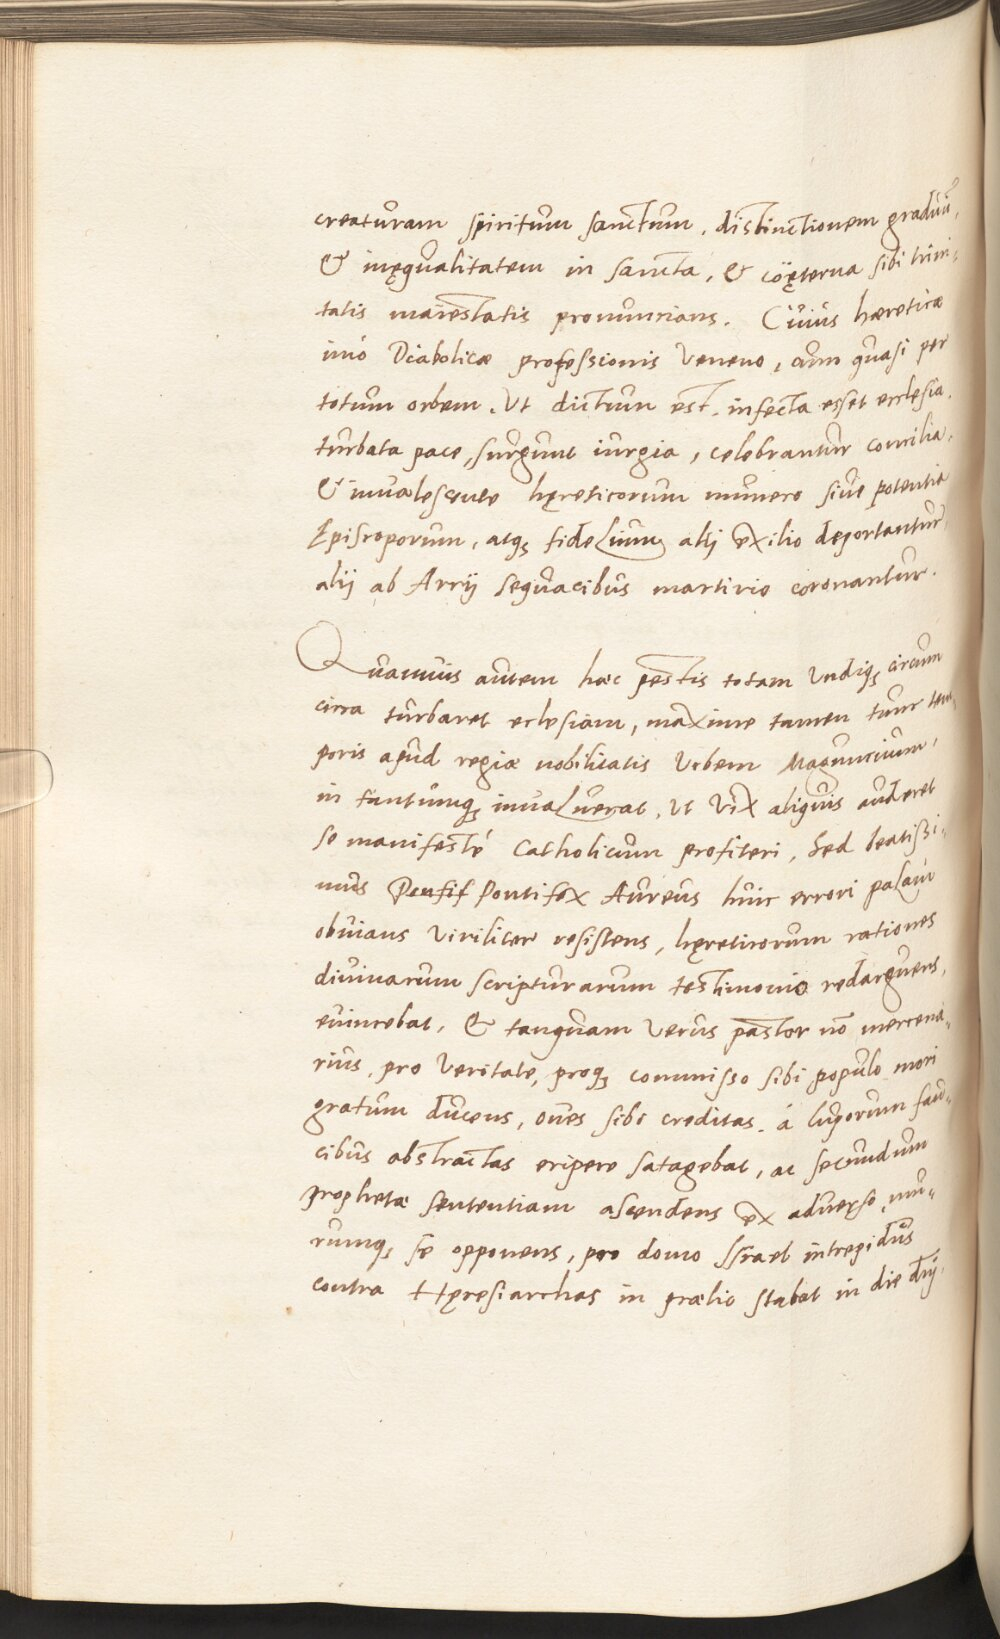 creaturam spiritum sanctum, distinctionem graduū,
& inęqualitatem in sancta, & coęterna sibi trini-
tatis maiestatis pronuncians. Cuius hæreticæ
imó Diabolicæ professionis veneno, cum quasi per
totum orbem, ut dictum est, infecta esset ecclesia,
turbata pace, surgunt iurgia, celebrantur concilia,
& invalescente hęreticorum numero sive potentia
Episcoporum, atqꝫ fidelium alij exilio deportantur,
alij ab Arrij sequacibus martirio coronantur.
Quamvis autem hæc pestis totam undiqꝫ circum
circa turbaret eclesiam, maxime tamen tunc tem-
poris apud regiæ nobilitatis urbem Maguncium,
in tantumqꝫ invaluerat, ut vix aliquis auderet
se manifesté catholicum profiteri, Sed beatissi-
mus Pontifex Aureus huic errori palam
obvians viriliter resistens, hęreticorum rationes
divinarum scripturarum testimonio redarguens,
evincebat, & tanquam verus pastor nō mercena-
rius, pro veritate, proqꝫ commisso sibi populo mori
gratum ducens, oves sibi creditas á luporum fau-
cibus abstractas eripere satagebat, ac secundum
prophetæ sententiam ascendens ex adverso, mu-
rumqꝫ se opponens, pro domo Israel intrepidus
contra Hęresiarchas in prælio stabat in die dn̄i.